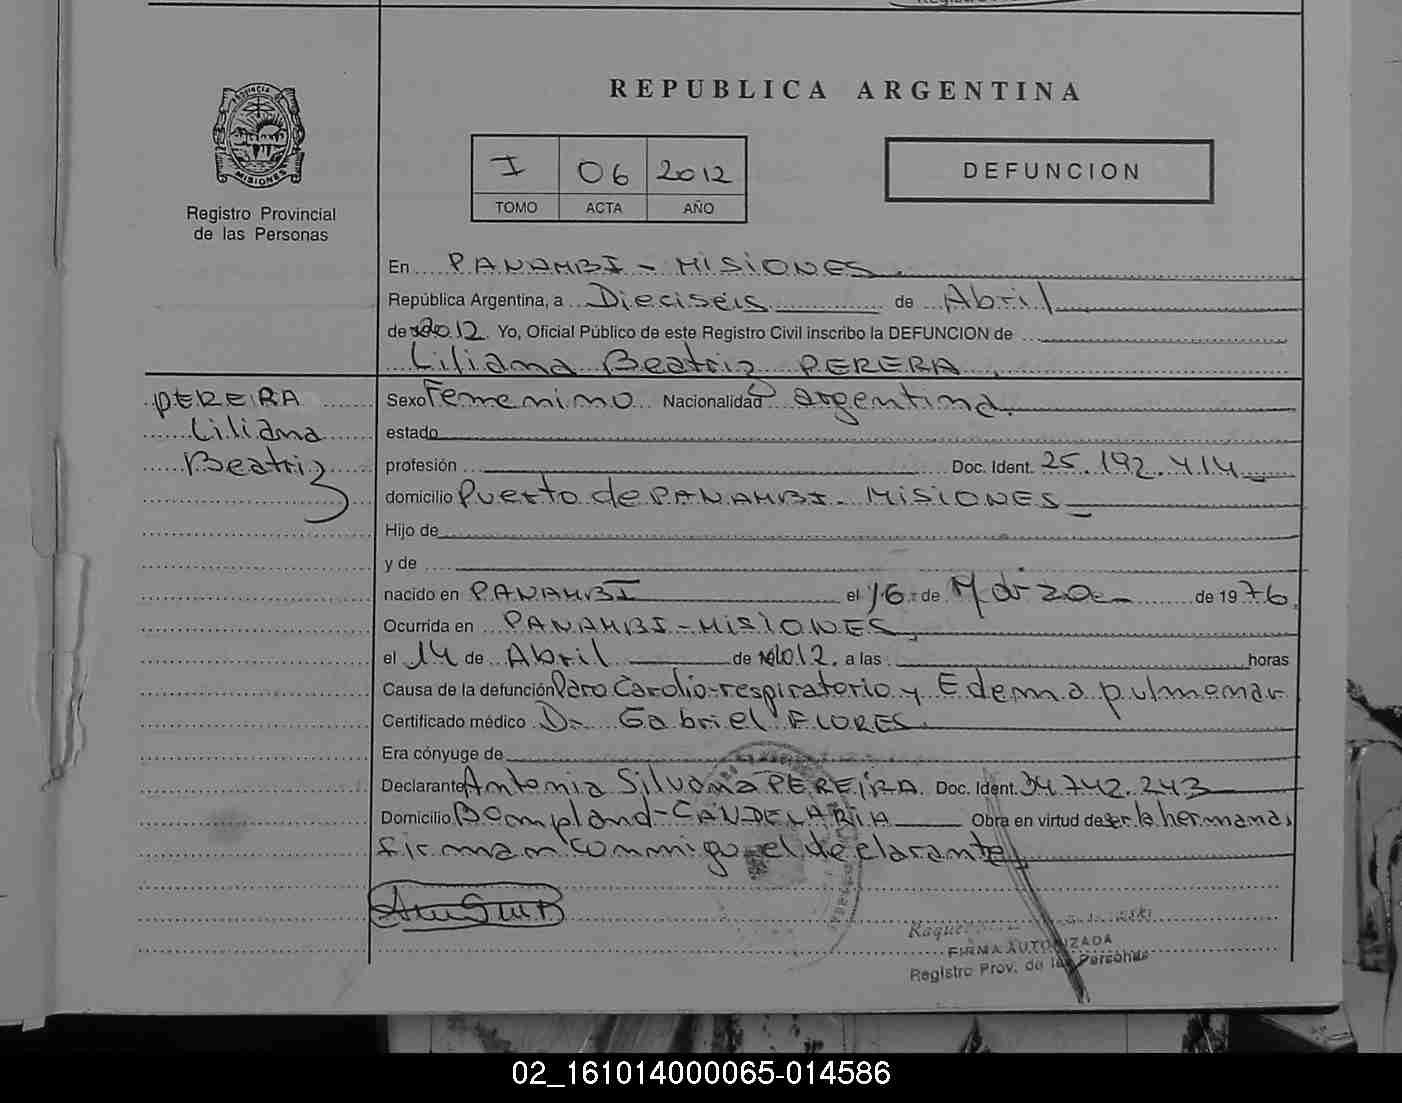 REPUBLICA ARGENTINA
Provincia de
MISIONES
Registro Provincial
de las Personas
I 06 2012
TOMO ACTA AÑO
DEFUNCION
En PANAMBI - MISIONES.
República Argentina, a Dieciseis de Abril
de 2012 Yo, Oficial Público de este Registro Civil inscribo la DEFUNCION de
Liliana Beatriz PERERA.
PEREIRA
Liliana
Beatriz
Sexo Femenino Nacionalidad argentina.
estado
profesión Doc. Ident. 25.192.414
domicilio Puerto de PANAMBI - MISIONES
Hijo de
y de
nacido en PANAMBI el 16 de Marzo de 1976
Ocurrida en PANAMBI - MISIONES
el 14 de Abril de 2012. a las horas
Causa de la defunción Paro Cardio-respiratorio y Edema pulmonar
Certificado médico Dr. Gabriel FLORES.
Era cónyuge de
Declarante Antonia Silvana PEREIRA. Doc. Ident. 34.742.243
Domicilio Bompland - CANDELARIA Obra en virtud de ser la hermana,
firman conmigo el declarante
Raquel
FIRMA AUTORIZADA
Registro Prov. de las Personas
02_161014000065-014586